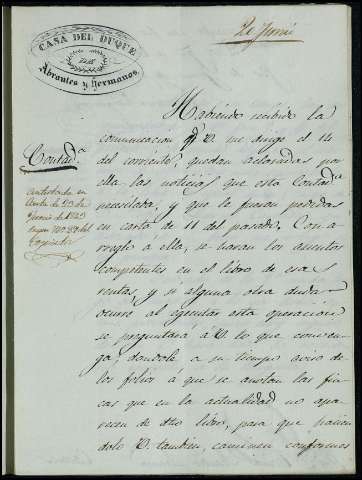 CASA DEL DUQUE
DE
Abrantes y Hermanos.
Contad.a
Habiendo recibido la
comunicacion q.e V. me dirige el 14
del corriente, quedan aclaradas por
ella las noticias que esta Contad.a
necesitaba, y que le fueron pedidas
en carta de 11 del pasado. Con a-
rreglo a ella, se haran los asientos
competentes en el libro de esas
rentas, y si alguna otra duda
ocurre al egecutar esta operacion
se preguntará á V. lo que conven-
ga; dandole a su tiempo aviso de
los folios a que se anotan las fin-
cas que en la actualidad no apa-
recen de dho libro, para que hacien-
dolo V. tambien, caminen conformes